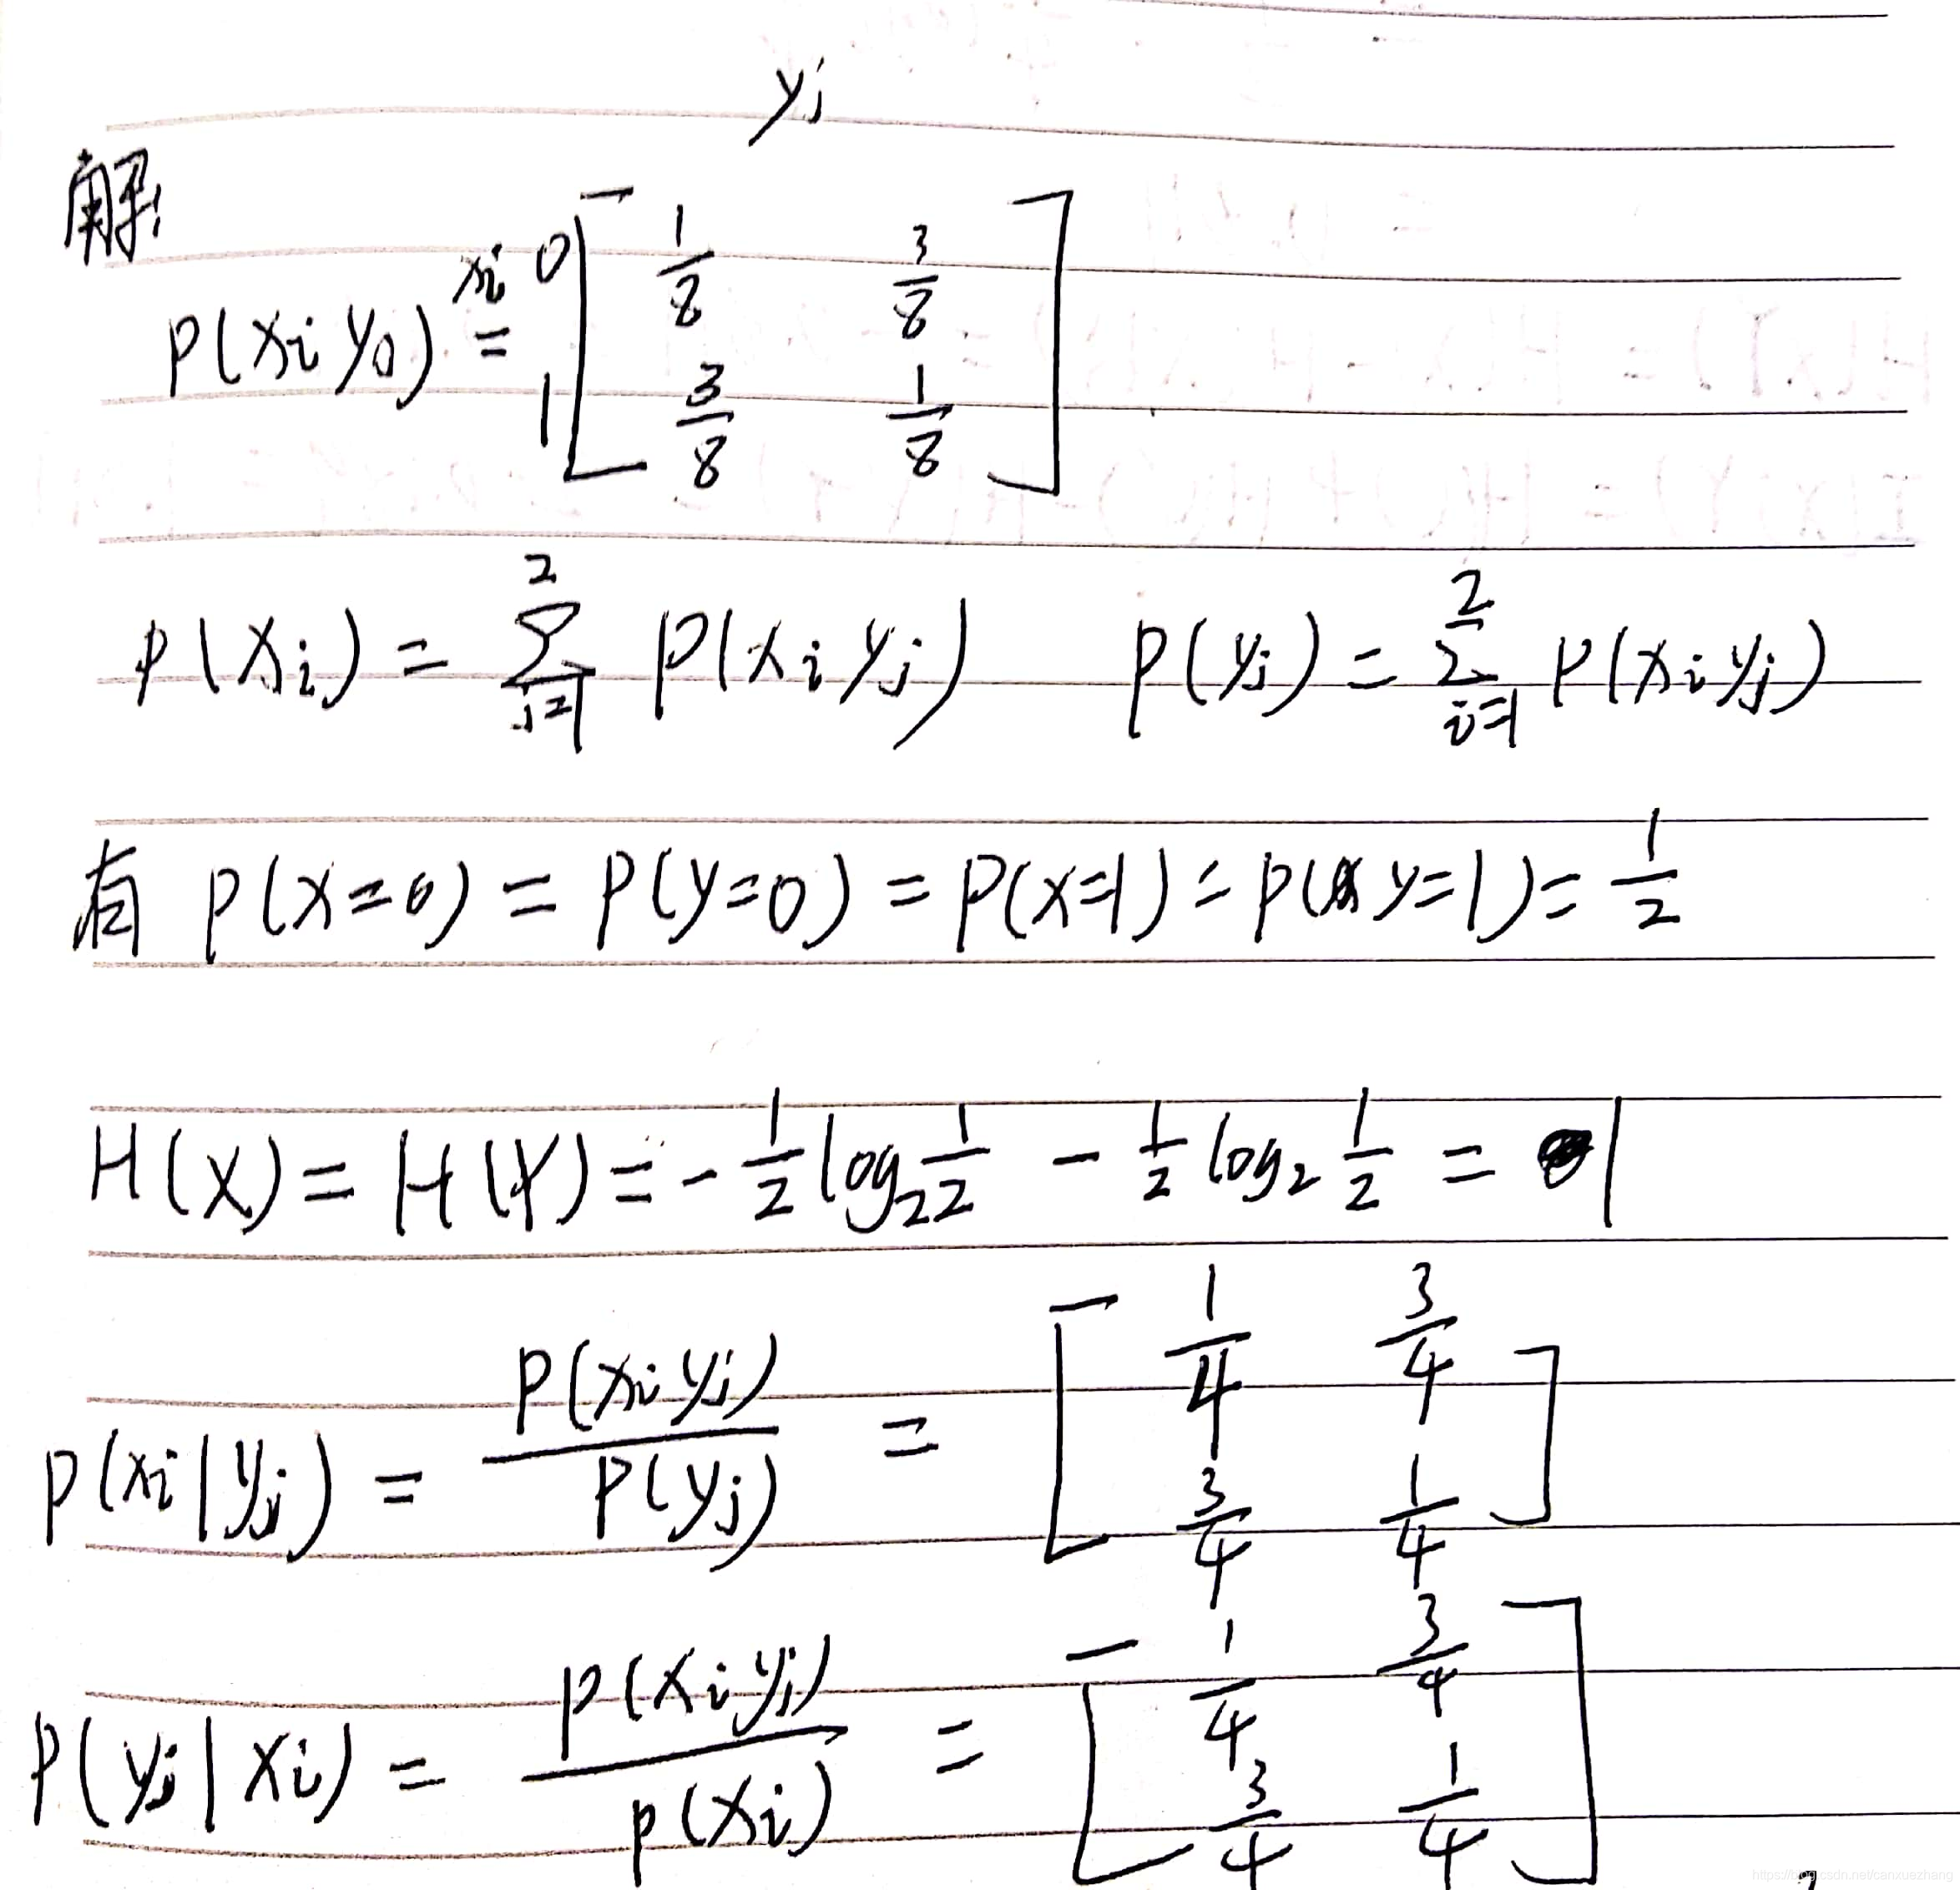 yj
解:
P(xi yj) = xi 0 [ 1/8 3/8
1 3/8 1/8 ]
P(xi) = 2∑j=1 P(xi yj) P(yj) = 2∑i=1 P(xi yj)
有 P(x=0) = P(y=0) = P(x=1) = P(y=1) = 1/2
H(X) = H(Y) = - 1/2 log2 1/2 - 1/2 log2 1/2 = 1
P(xi|yj) = P(xi yj) / P(yj) = [ 1/4 3/4
3/4 1/4 ]
P(yj|xi) = P(xi yj) / P(xi) = [ 1/4 3/4
3/4 1/4 ]